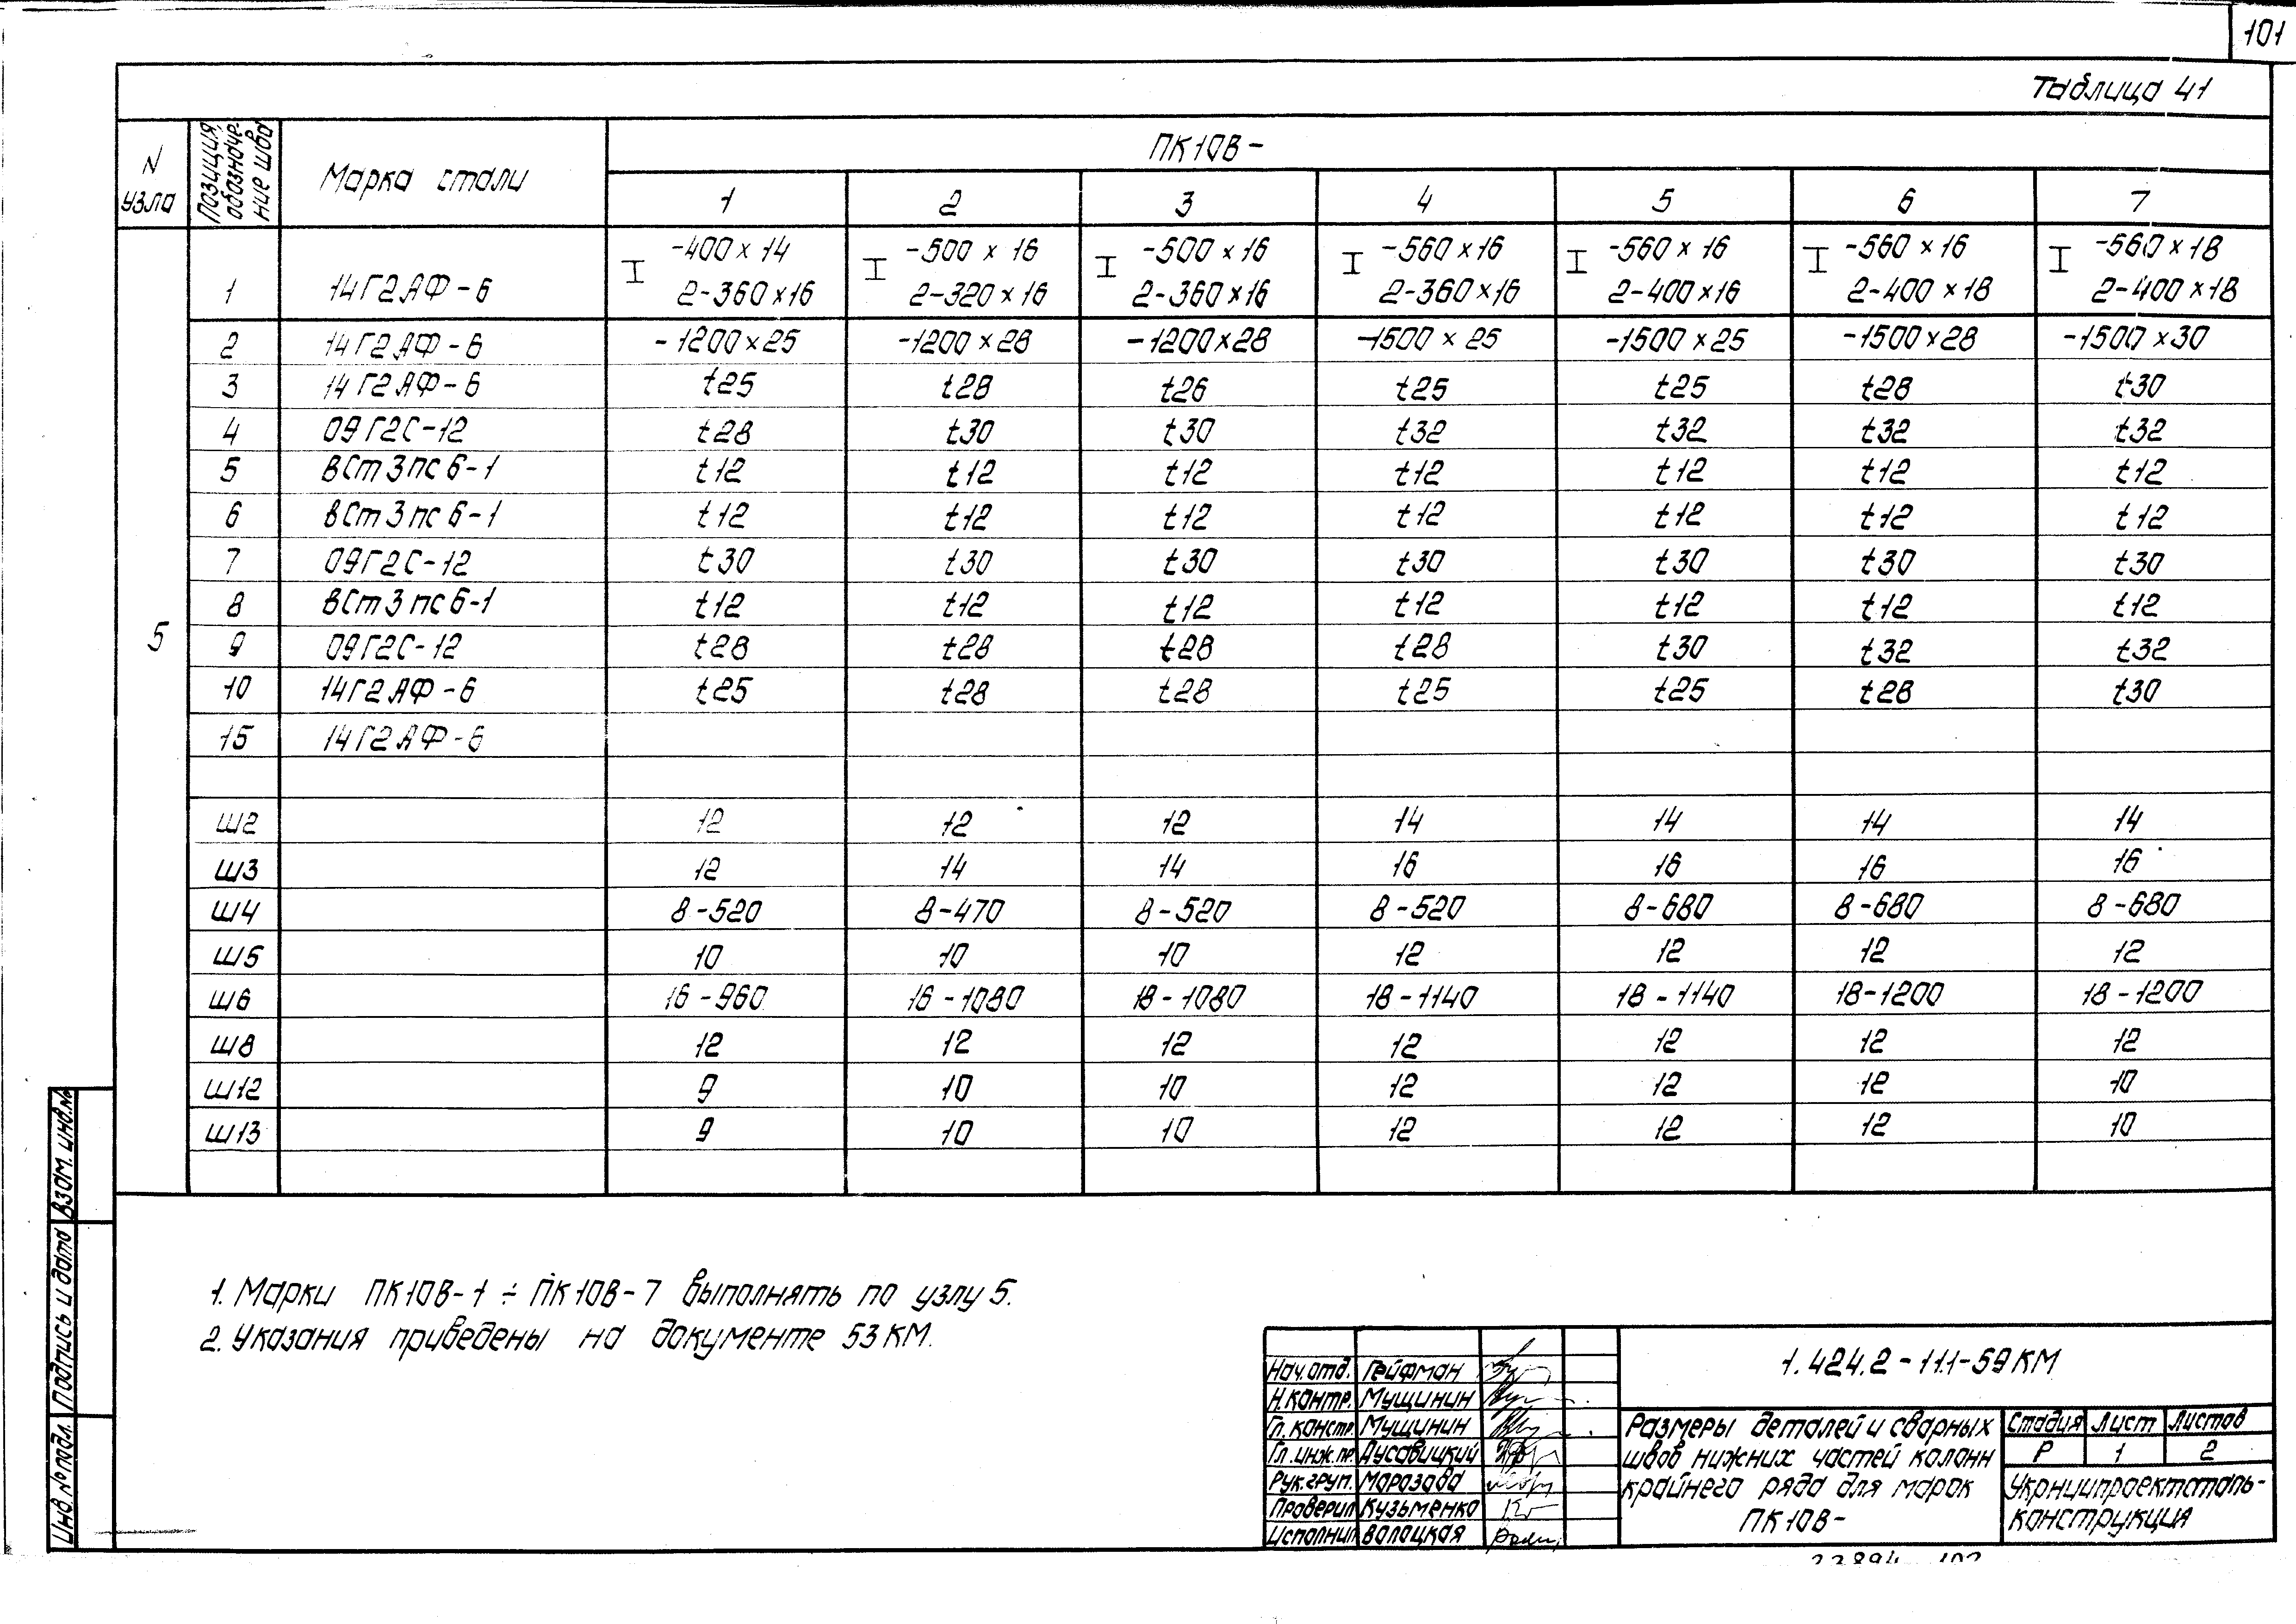 101
Таблица 41
N узла
Позиция, обозначение шва
Марка стали
ПК10В-
1 2 3 4 5 6 7
5
1 14Г2АФ-6 I -400×14 2-360×16 I -500×16 2-320×16 I -500×16 2-360×16 I -560×16 2-360×16 I -560×16 2-400×16 I -560×16 2-400×18 I -560×18 2-400×18
2 14Г2АФ-6 -1200×25 -1200×28 -1200×28 -1500×25 -1500×25 -1500×28 -1500×30
3 14Г2АФ-6 t25 t28 t26 t25 t25 t28 t30
4 09Г2С-12 t28 t30 t30 t32 t32 t32 t32
5 ВСт3пс6-1 t12 t12 t12 t12 t12 t12 t12
6 ВСт3пс6-1 t12 t12 t12 t12 t12 t12 t12
7 09Г2С-12 t30 t30 t30 t30 t30 t30 t30
8 ВСт3пс6-1 t12 t12 t12 t12 t12 t12 t12
9 09Г2С-12 t28 t28 t28 t28 t30 t32 t32
10 14Г2АФ-6 t25 t28 t28 t25 t25 t28 t30
15 14Г2АФ-6
Ш2 12 12 12 14 14 14 14
Ш3 12 14 14 16 16 16 16
Ш4 8-520 8-470 8-520 8-520 8-680 8-680 8-680
Ш5 10 10 10 12 12 12 12
Ш6 16-960 16-1080 18-1080 18-1140 18-1140 18-1200 18-1200
Ш8 12 12 12 12 12 12 12
Ш12 9 10 10 12 12 12 10
Ш13 9 10 10 12 12 12 10
1. Марки ПК10В-1 ÷ ПК10В-7 выполнять по узлу 5.
2. Указания приведены на документе 53КМ.
Инв.№подл. Подпись и дата Взам. инв.№
Нач.отд. Гейфман
Н.контр. Мущинин
Гл.констр. Мущинин
Гл.инж.пр.
Рук.груп. Морозова
Проверил Кузьменко
Исполнил Волоцкая
1.424.2-11.1-59КМ
Размеры деталей и сварных
швов нижних частей колонн
крайнего ряда для марок
ПК10В-
Стадия Лист Листов
Р 1 2
Укрниипроектсталь-
конструкция